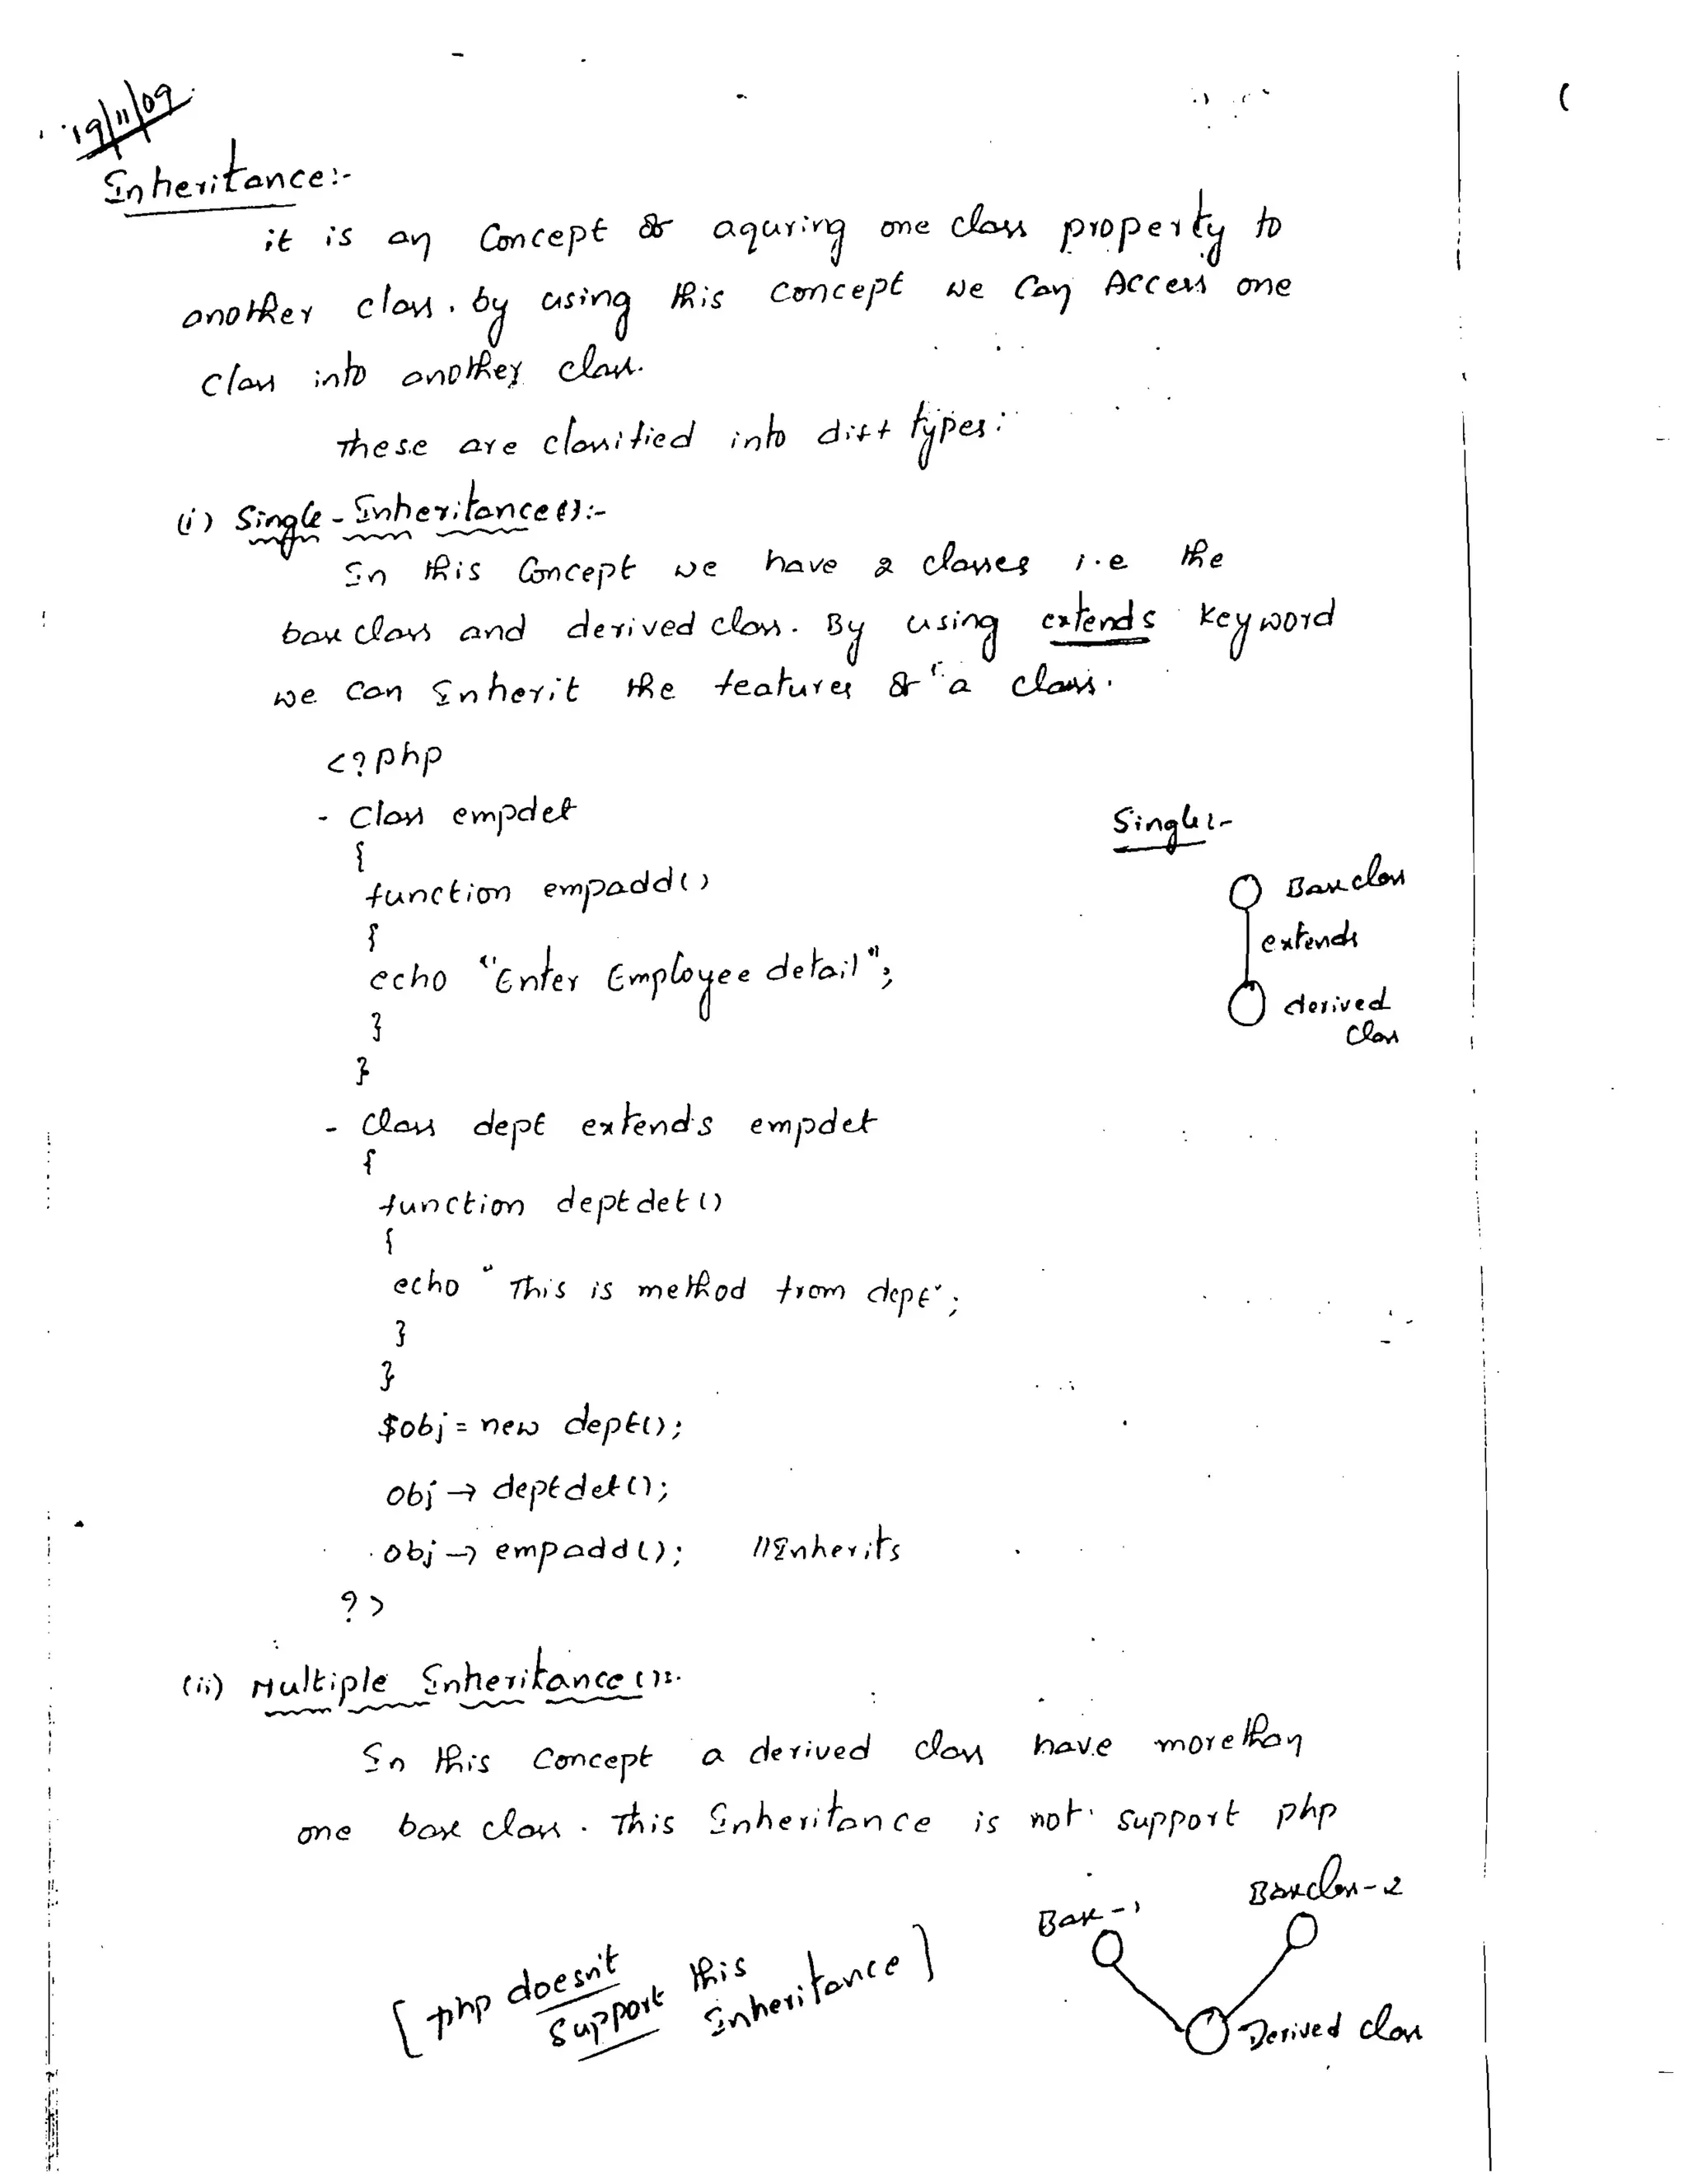 19/11/09
Inheritance:-
it is an Concept of aquring one class property to
another class. by using this concept we can Access one
class into another class.
These are classified into diff types:
(i) Single-Inheritance():-
In this Concept we have 2 classes i.e the
base class and derived class. By using extends keyword
we can Inherit the features of a class.
<?php
- Class empdet
{
function empadd()
{
echo "Enter Employee detail";
}
}
Single:-
Base class
extends
derived
class
- Class dept extends empdet
{
function deptdet()
{
echo "This is method from dept";
}
}
$obj = new dept();
obj → deptdet();
obj → empadd(); //Inherits
?>
(ii) Multiple Inheritance():-
In this Concept a derived class have morethan
one base class. This Inheritance is not support php
[php doesn't
support this
Inheritance]
Base-1
Baseclass-2
Derived class